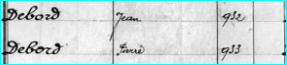 Debord Jean 932
Debord Pierre 933